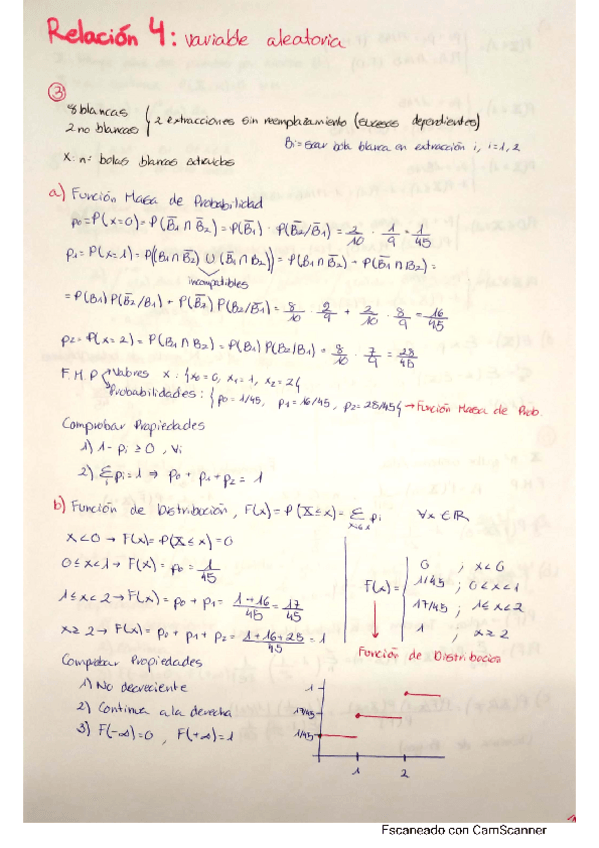 Relación 4: variable aleatoria
③
8 blancas
2 no blancas { 2 extracciones sin reemplazamiento (sucesos dependientes)
Bi = sacar bola blanca en extracción i, i=1,2
X: nº bolas blancas extraídas
a) Función Masa de Probabilidad
p₀ = P(x=0) = P(B̄₁ ∩ B̄₂) = P(B̄₁) · P(B̄₂/B̄₁) = 2/10 · 1/9 = 1/45
p₁ = P(x=1) = P((B₁ ∩ B̄₂) ∪ (B̄₁ ∩ B₂)) = P(B₁ ∩ B̄₂) + P(B̄₁ ∩ B₂) =
incompatibles
= P(B₁) P(B̄₂/B₁) + P(B̄₁) P(B₂/B̄₁) = 8/10 · 2/9 + 2/10 · 8/9 = 16/45
p₂ = P(x=2) = P(B₁ ∩ B₂) = P(B₁) P(B₂/B₁) = 8/10 · 7/9 = 28/45
F.M.P Valores x: {x₀=0, x₁=1, x₂=2}
Probabilidades: {p₀=1/45, p₁=16/45, p₂=28/45} → Función Masa de Prob.
Comprobar Propiedades
1) 1 - pi ≥ 0, ∀i
2) Σ pi = 1 ⇒ p₀ + p₁ + p₂ = 1
b) Función de Distribución, F(x) = P(X ≤ x) = Σ pi ∀x ∈ ℝ
xi ≤ x
x<0 → F(x) = P(X ≤ x) = 0
0 ≤ x < 1 → F(x) = p₀ = 1/45
1 ≤ x < 2 → F(x) = p₀ + p₁ = 1+16/45 = 17/45
x ≥ 2 → F(x) = p₀ + p₁ + p₂ = 1+16+28/45 = 1
F(x) =
0 ; x<0
1/45 ; 0<x<1
17/45 ; 1≤x<2
1 ; x≥2
Función de Distribución
Comprobar Propiedades
1) No decreciente
2) Continua a la derecha
3) F(-∞)=0, F(+∞)=1
1
17/45
1/45
1 2
Escaneado con CamScanner